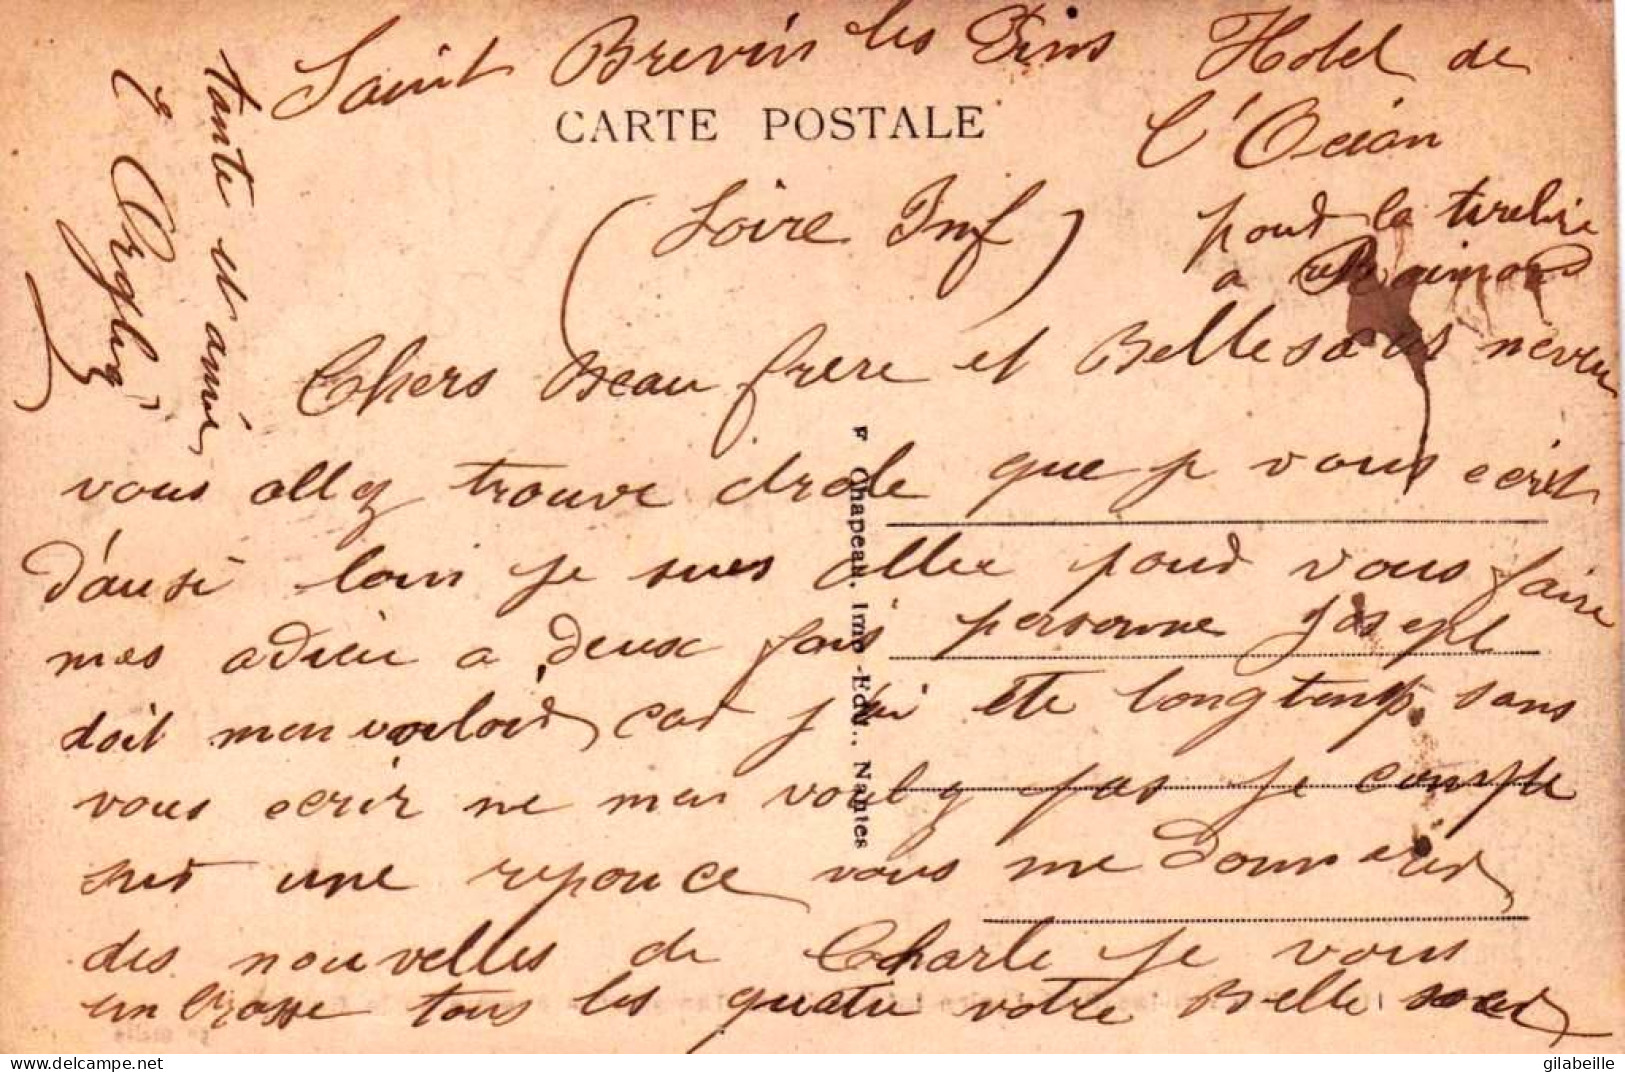 Saint Brevin les Pins Hotel de
l'Ocian
CARTE POSTALE
(Loire Inf)
pour la tirelire
a Raimond
Chers Beau frere et Belle sœur neveu
vous allez trouve drole que je vous ecrit
d'ausi loin je sues allee pour vous faire
mes adieu a deux fois personne Joseph
doit men vouloir car j'ai ete longtemp sans
vous ecrir ne men voulez pas je compte
sur une reponce vous me donnerer
des nouvelles de Charle je vous
embrasse tous les quatre votre Belle sœur
tante et amie
F Chapeau, Imp.-Edit., Nantes
delcampe.net
gilabeille